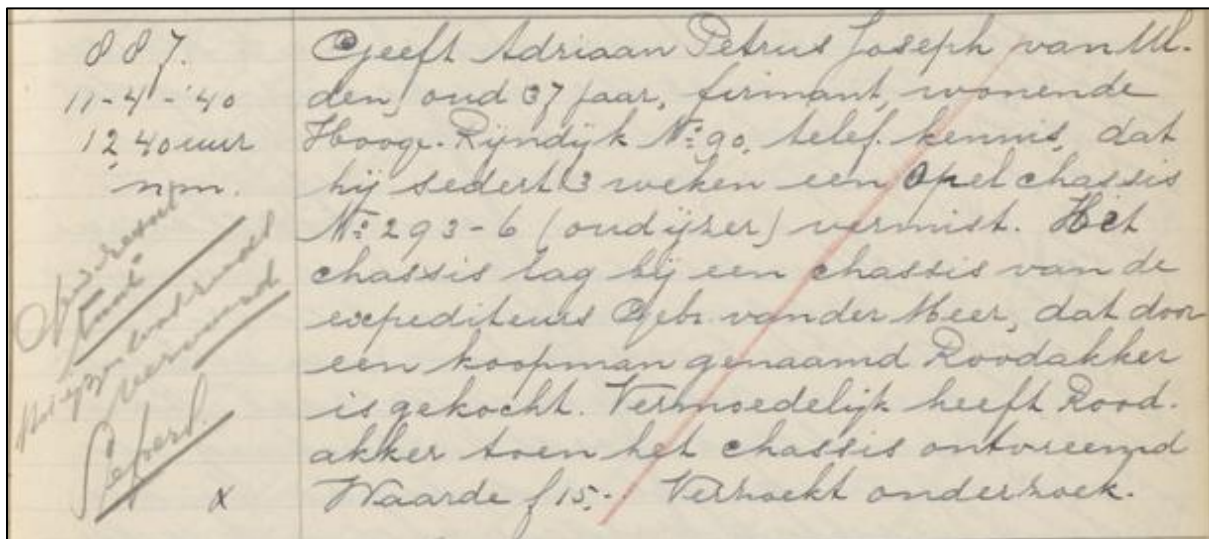 887.
11-4-'40
12.40 uur
npm.
Geeft Adriaan Petrus Joseph van Ul-
den, oud 37 jaar, firmant, wonende
Hooge-Rijndijk No 90, telef. kennis, dat
hij sedert 3 weken een Opel chassis
No 293-6 (oud ijzer) vermist. Het
chassis lag bij een chassis van de
expediteurs Gebr. van der Meer, dat door
een koopman genaamd Roodakker
is gekocht. Vermoedelijk heeft Rood-
akker toen het chassis ontvreemd
Waarde f 15.- Verzoekt onderzoek.
x